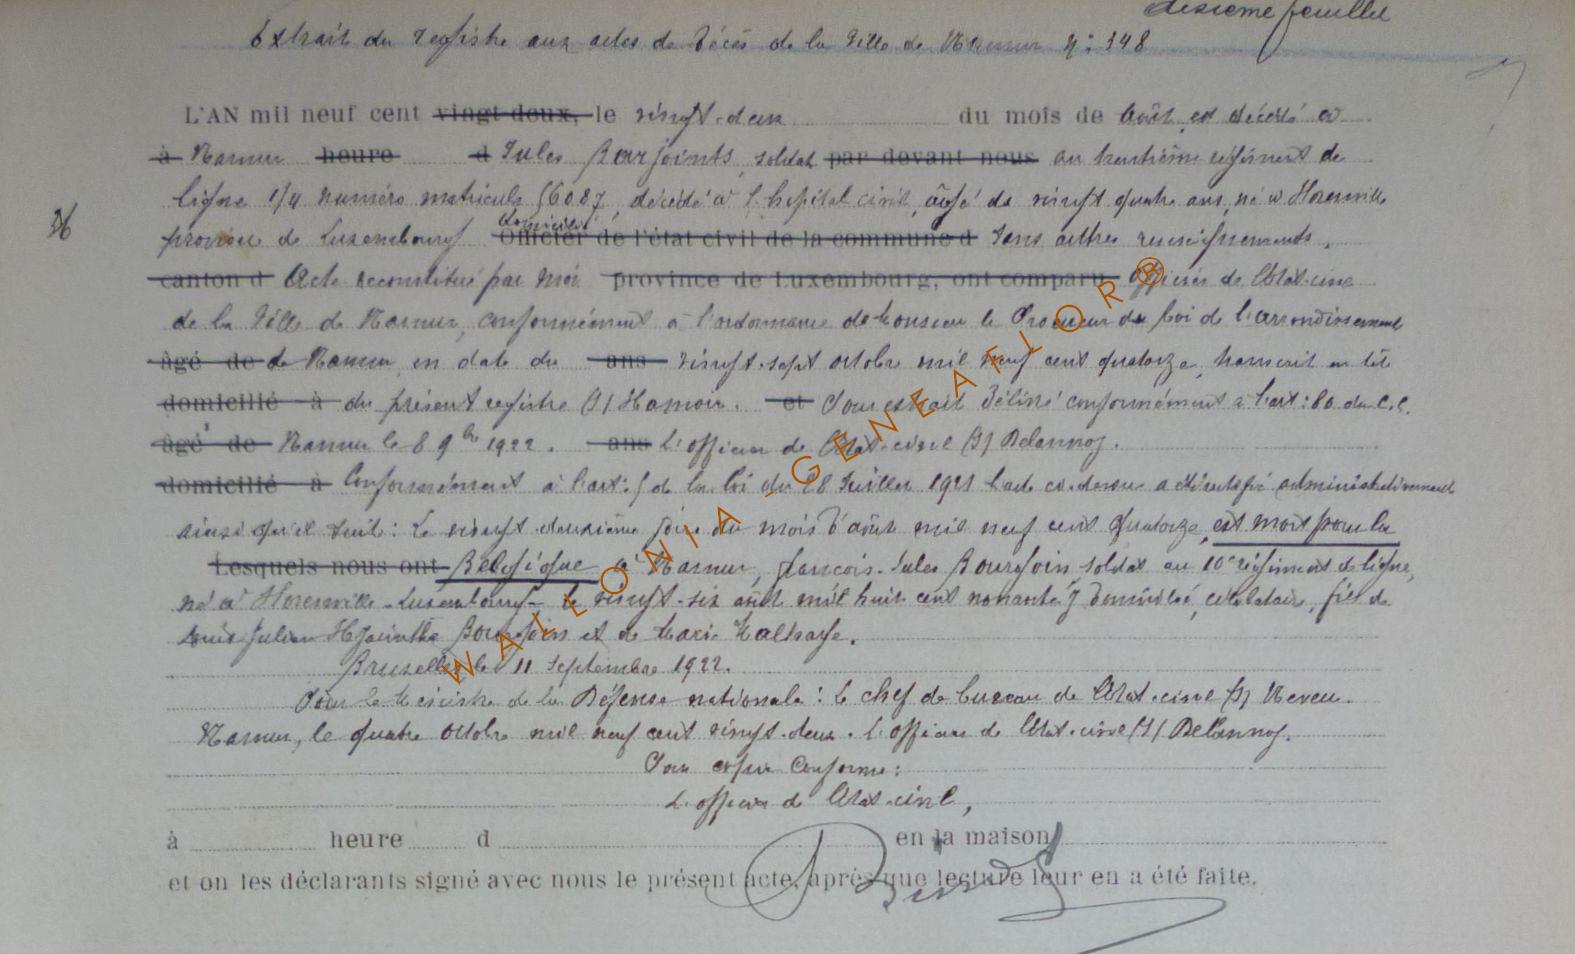 sixième feuillet
Extrait du registre aux actes de décès de la Ville de Namur N: 348
L'AN mil neuf cent vingt-deux, le vingt-deux du mois de Août est décédé à
à Namur heure d Jules Bourjoints, soldat par devant nous au trentième régiment de
ligne 1/4 numéro matricule 56087, décédé à l'hopital civil, âgé de vingt quatre ans, né à Horenville
province de Luxembourg domicilié Officier de l'état civil de la commune d Sans autres renseignements.
canton d Acte reconstitué par moi province de Luxembourg, ont comparu officier de l'Etat-civil
de la Ville de Namur, conformément à l'ordonnance de Monsieur le Procureur du Roi de l'arrondissement
âgé de de Namur, en date du ans vingt-sept octobre mil neuf cent quatorze, transcrit en tête
domicilié à du présent registre (s) Hamoir. et Pour extrait délivré conformément à l'art: 80 du C.C.
âgé de Namur le 8 9bre 1922. ans L'officier de l'Etat-civil (s) Delannoy.
domicilié à Conformément à l'art: 5 de la loi du 28 Juillet 1921 l'acte ci-dessus a été rectifié administrativement
ainsi qu'il suit: Le vingt-deuxième jour du mois d'août mil neuf cent quatorze, est mort pour la
Lesquels nous ont Belgique à Namur, françois-Jules Bourgoin soldat au 10e régiment de ligne,
né à Horenville-Luxembourg- le vingt-six août mil huit cent nonante, y domicilié, célibataire, fils de
Louis Julien Hyacinthe Bourgoin et de Marie Malhage.
Bruxelles, le 11 Septembre 1922.
Pour le Ministre de la Défense nationale: le chef de bureau de l'Etat-civil (s) Neveu.
Namur, le quatre octobre mil neuf cent vingt-deux. L'officier de l'Etat-civil (s) Delannoy.
Pour copie conforme:
L'officier de l'Etat-civil,
à heure d en la maison
et on les déclarants signé avec nous le présent acte, après que lecture leur en a été faite.
WALLONIA-GENEAFLOR®